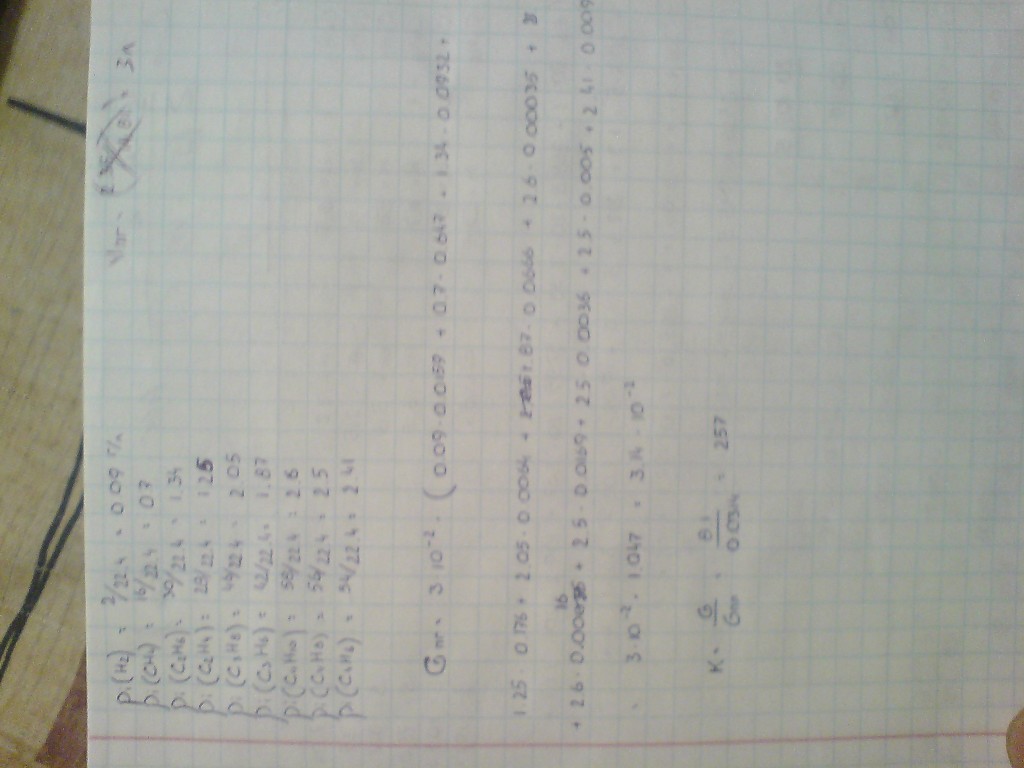 ρi(H2) = 2/22.4 = 0.09 г/л
ρi(CH4) = 16/22.4 = 0.7
ρi(C2H6) = 30/22.4 = 1.34
ρi(C2H4) = 28/22.4 = 1.25
ρi(C3H8) = 44/22.4 = 2.05
ρi(C3H6) = 42/22.4 = 1.87
ρi(C4H10) = 58/22.4 = 2.6
ρi(C4H8) = 56/22.4 = 2.5
ρi(C4H6) = 54/22.4 = 2.41
Vпг = 3л
Gпг = 3·10⁻² · (0.09·0.0159 + 0.7·0.617 + 1.34·0.0932 +
1.25·0.176 + 2.05·0.0064 + 1.87·0.0666 + 2.6·0.00035 +
+ 2.6·0.00016 + 2.5·0.0169 + 2.5·0.0036 + 2.5·0.005 + 2.41·0.009
= 3·10⁻² · 1.047 = 3.14·10⁻²
K = G/Gпг = 8.1/0.0314 = 257